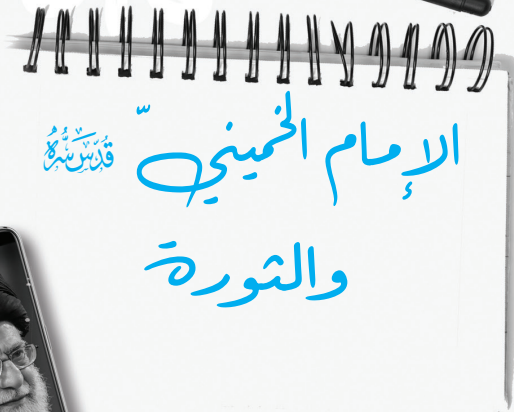 الإمام الخمينيّ قدّس سرّه
والثورة